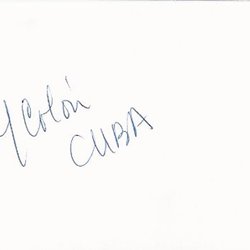 Colón
CUBA